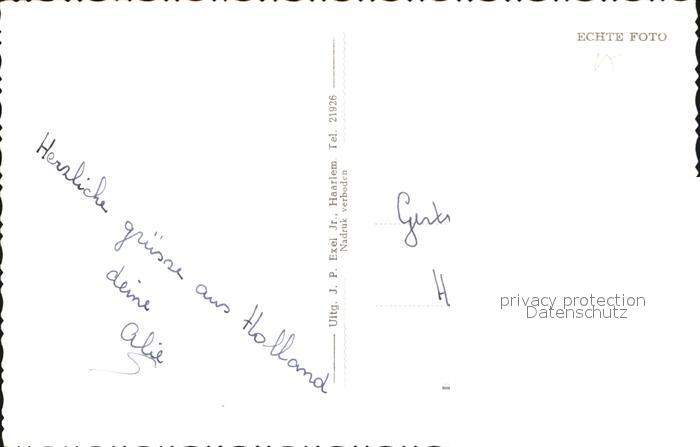 ECHTE FOTO
Herzliche grüsse aus Holland
deine
Alie
Uitg. J. P. Exel Jr., Haarlem Tel. 21926
Nadruk verboden
H
privacy protection
Datenschutz